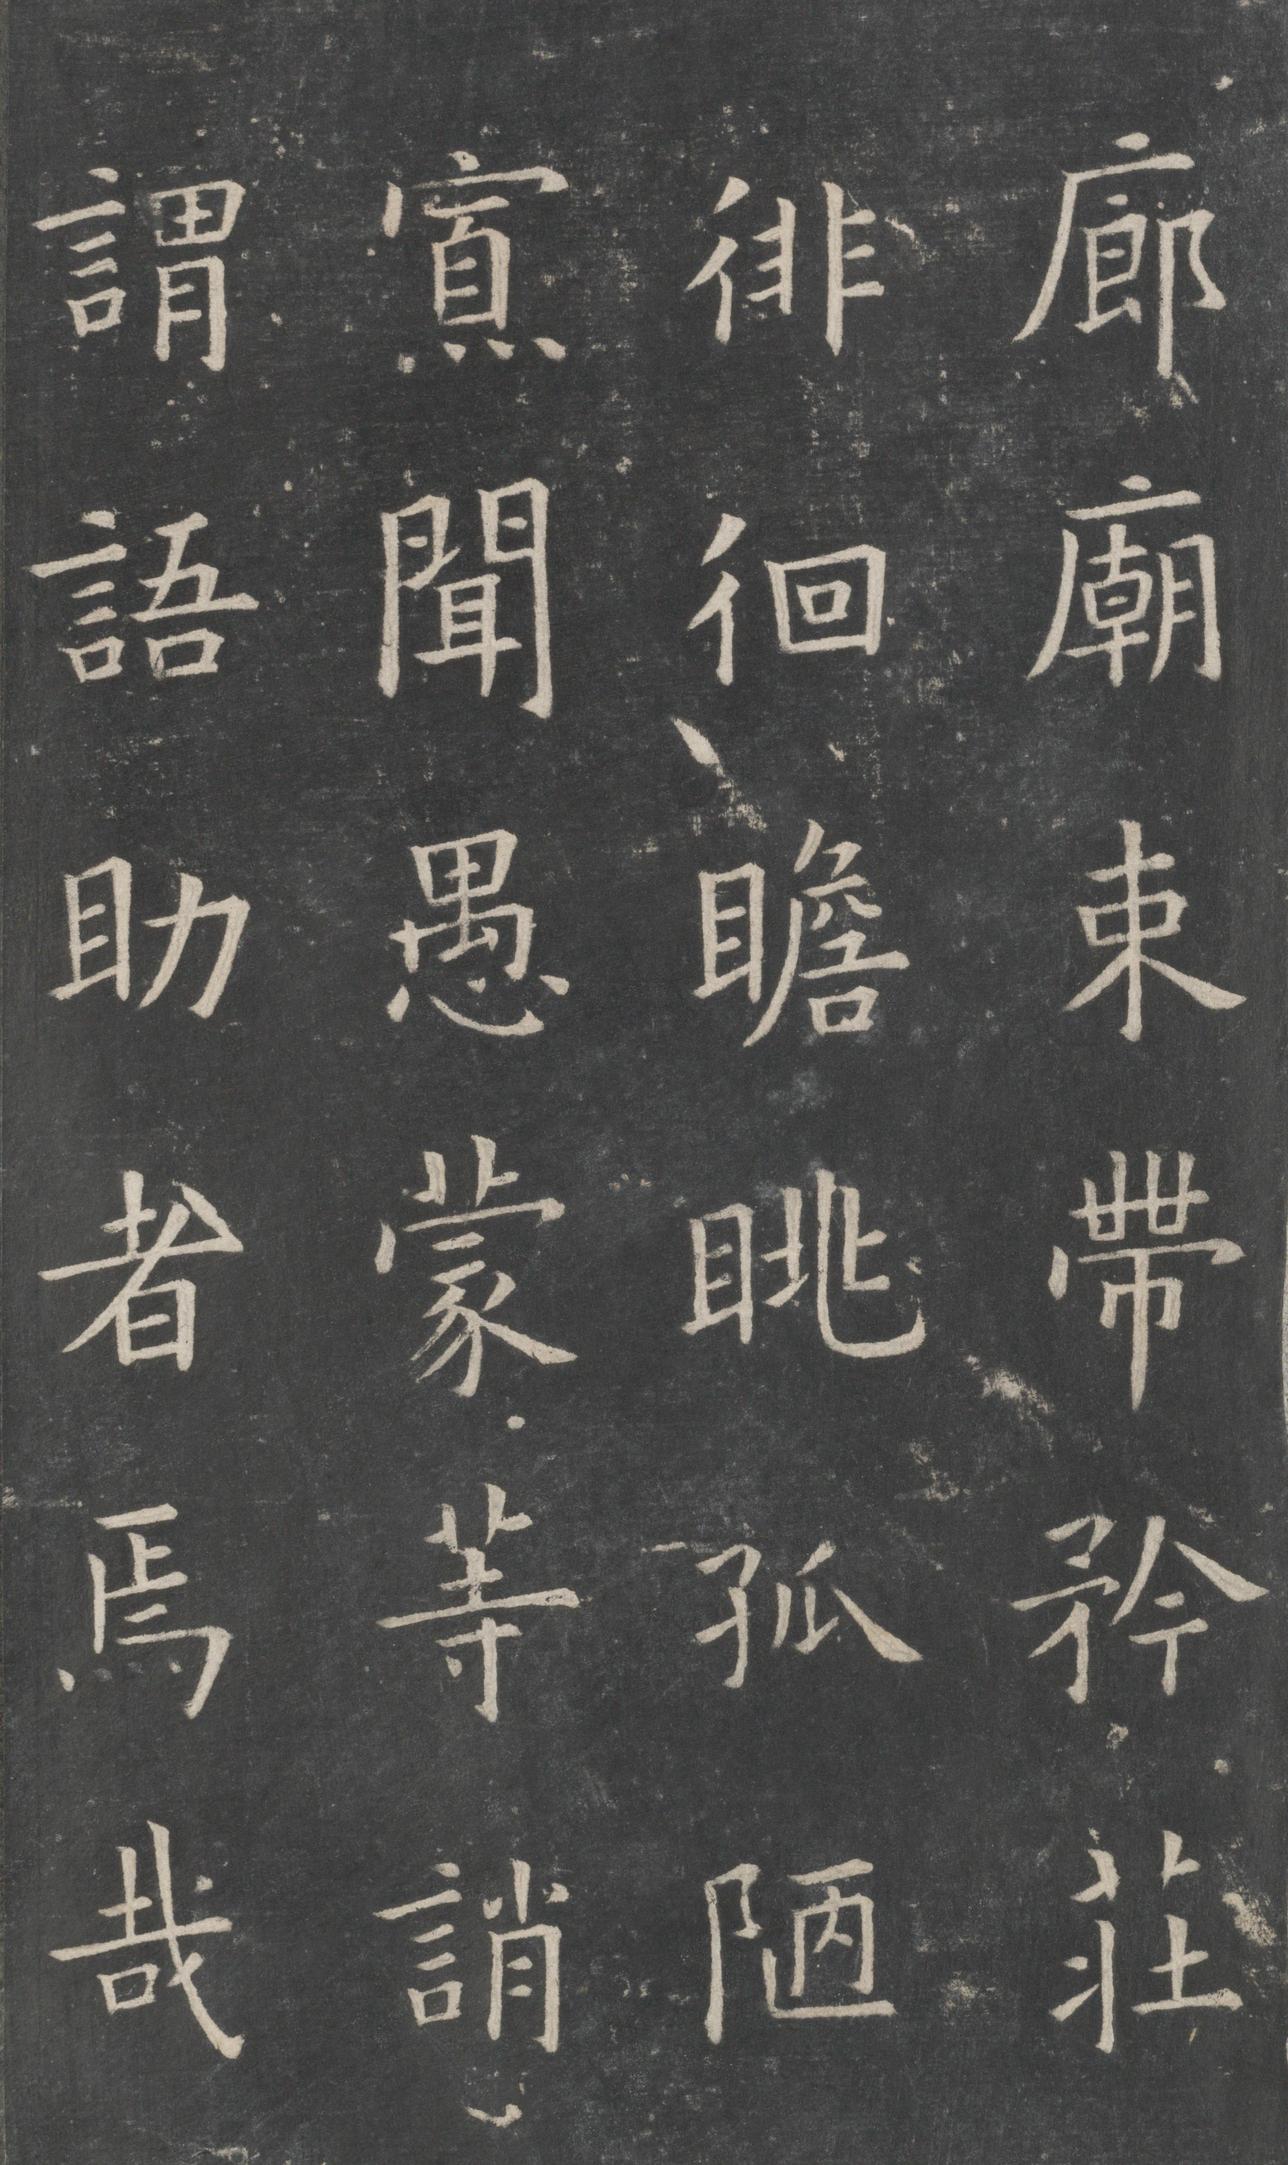 廊廟束帶矜莊
徘徊瞻眺孤陋
寡聞愚蒙等誚
謂語助者焉哉